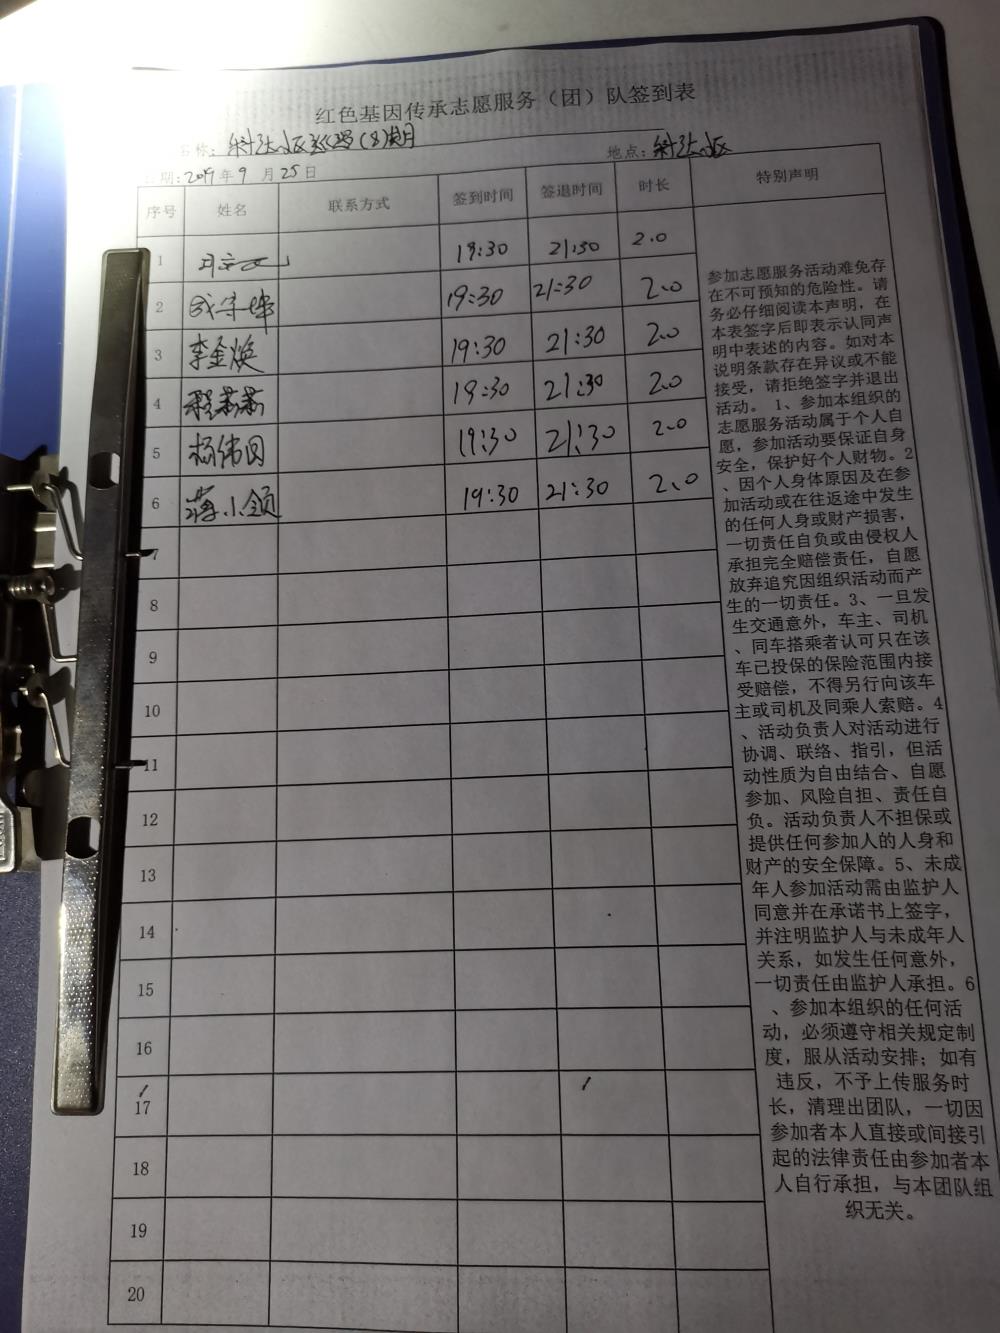 红色基因传承志愿服务（团）队签到表
名称：科技小区巡逻（8）期
地点：科技小区
期：2019年9月25日
序号 姓名 联系方式 签到时间 签退时间 时长 特别声明
1 19:30 21:30 2.0
2 19:30 21:30 2.0
3 李金焕 19:30 21:30 2.0
4 程燕燕 19:30 21:30 2.0
5 杨伟国 19:30 21:30 2.0
6 蒋小领 19:30 21:30 2.0
7
8
9
10
11
12
13
14
15
16
17
18
19
20
参加志愿服务活动难免存
在不可预知的危险性。请
务必仔细阅读本声明，在
本表签字后即表示认同声
明中表述的内容。如对本
说明条款存在异议或不能
接受，请拒绝签字并退出
活动。 1、参加本组织的
志愿服务活动属于个人自
愿，参加活动要保证自身
安全，保护好个人财物。2
、因个人身体原因及在参
加活动或在往返途中发生
的任何人身或财产损害，
一切责任自负或由侵权人
承担完全赔偿责任，自愿
放弃追究因组织活动而产
生的一切责任。3、一旦发
生交通意外，车主、司机
、同车搭乘者认可只在该
车已投保的保险范围内接
受赔偿，不得另行向该车
主或司机及同乘人索赔。4
、活动负责人对活动进行
协调、联络、指引，但活
动性质为自由结合、自愿
参加、风险自担、责任自
负。活动负责人不担保或
提供任何参加人的人身和
财产的安全保障。5、未成
年人参加活动需由监护人
同意并在承诺书上签字，
并注明监护人与未成年人
关系，如发生任何意外，
一切责任由监护人承担。6
、参加本组织的任何活
动，必须遵守相关规定制
度，服从活动安排；如有
违反，不予上传服务时
长，清理出团队，一切因
参加者本人直接或间接引
起的法律责任由参加者本
人自行承担，与本团队组
织无关。